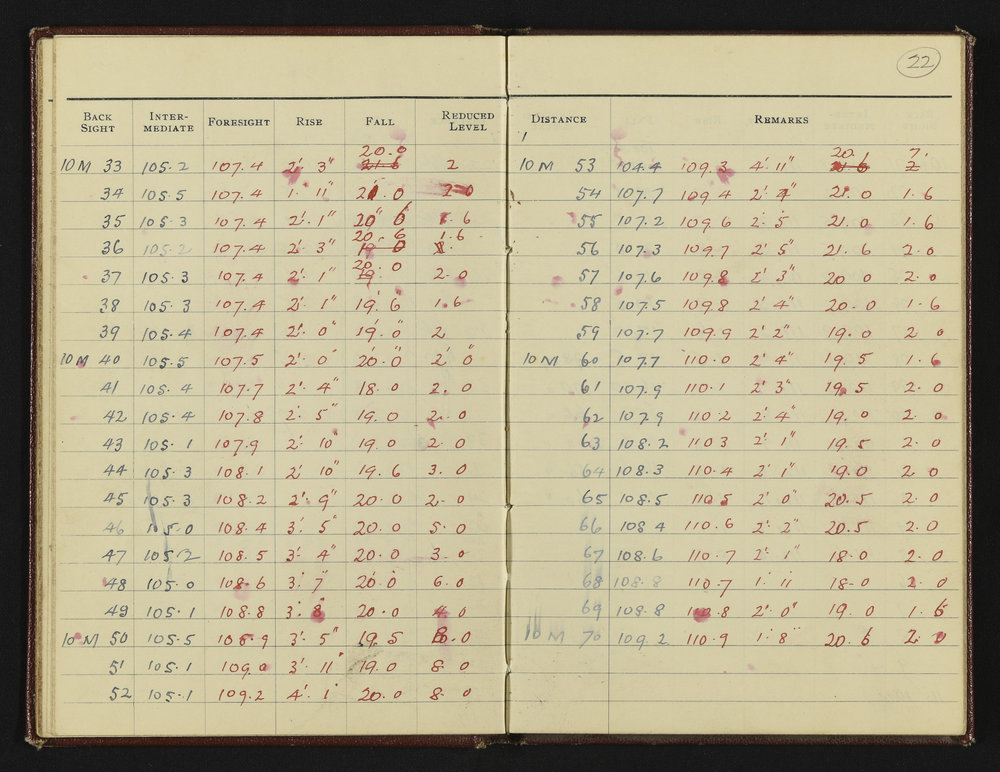 22
BACK SIGHT INTER-MEDIATE FORESIGHT RISE FALL REDUCED LEVEL
20.0
10 M 33 105.2 107.4 2'. 3" 21.6 2
34 105.5 107.4 1. 11" 21.0 2-0
35 105.3 107.4 2'. 1" 20" 6 1.6
20. 6 1.6
36 105.2 107.4 2'. 3" 19 0
20. 0
37 105.3 107.4 2'. 1" 19. 2.0
38 105.3 107.4 2'. 1" 19'. 6" 1.6
39 105.4 107.4 2'. 0" 19'. 0" 2
10 M 40 105.5 107.5 2'. 0" 20'. 0" 2' 0"
41 105.4 107.7 2'. 4" 18. 0 2. 0
42 105.4 107.8 2'. 5" 19. 0 2. 0
43 105.1 107.9 2'. 10" 19. 0 2. 0
44 105.3 108.1 2'. 10" 19. 6 3. 0
45 105.3 108.2 2'. 9" 20. 0 2. 0
46 105.0 108.4 3'. 5" 20. 0 5. 0
47 105.2 108.5 3'. 4" 20. 0 3. 0
48 105.0 108.6 3'. 7" 20. 0 6. 0
49 105.1 108.8 3'. 8" 20. 0 4. 0
10 M 50 105.5 108.9 3'. 5" 19.5 8.0
51 105.1 109.0 3'. 11" 19.0 8. 0
52 105.1 109.2 4'. 1" 20. 0 8. 0
DISTANCE REMARKS
20. 1 7.
10 M 53 104.4 109.3 4'. 11" 21 6 2
54 107.7 109.4 2'. 4" 21. 0 1. 6
55 107.2 109.6 2'. 5 21. 0 1. 6
56 107.3 109.7 2' 5" 21. 6 2. 0
57 107.6 109.8 2' 3" 20 0 2. 0
58 107.5 109.8 2' 4" 20. 0 1. 6
59 107.7 109.9 2' 2" 19. 0 2 0
10 M 60 107.7 110.0 2' 4" 19. 5 1. 6
61 107.9 110.1 2' 3" 19.5 2. 0
62 107.9 110.2 2'. 4" 19. 0 2. 0
63 108.2 110 3 2' 1" 19. 5 2. 0
64 108.3 110.4 2' 1" 19.0 2 0
65 108.5 110.5 2' 0" 20.5 2. 0
66 108 4 110.6 2'. 2" 20.5 2. 0
67 108.6 110.7 2'. 1" 18.0 2. 0
68 108.8 110.7 1. 11 18-0 2. 0
69 108.8 110.8 2'. 0" 19. 0 1. 6
10 M 70 109.2 110.9 1'. 8" 20. 6 2. 0